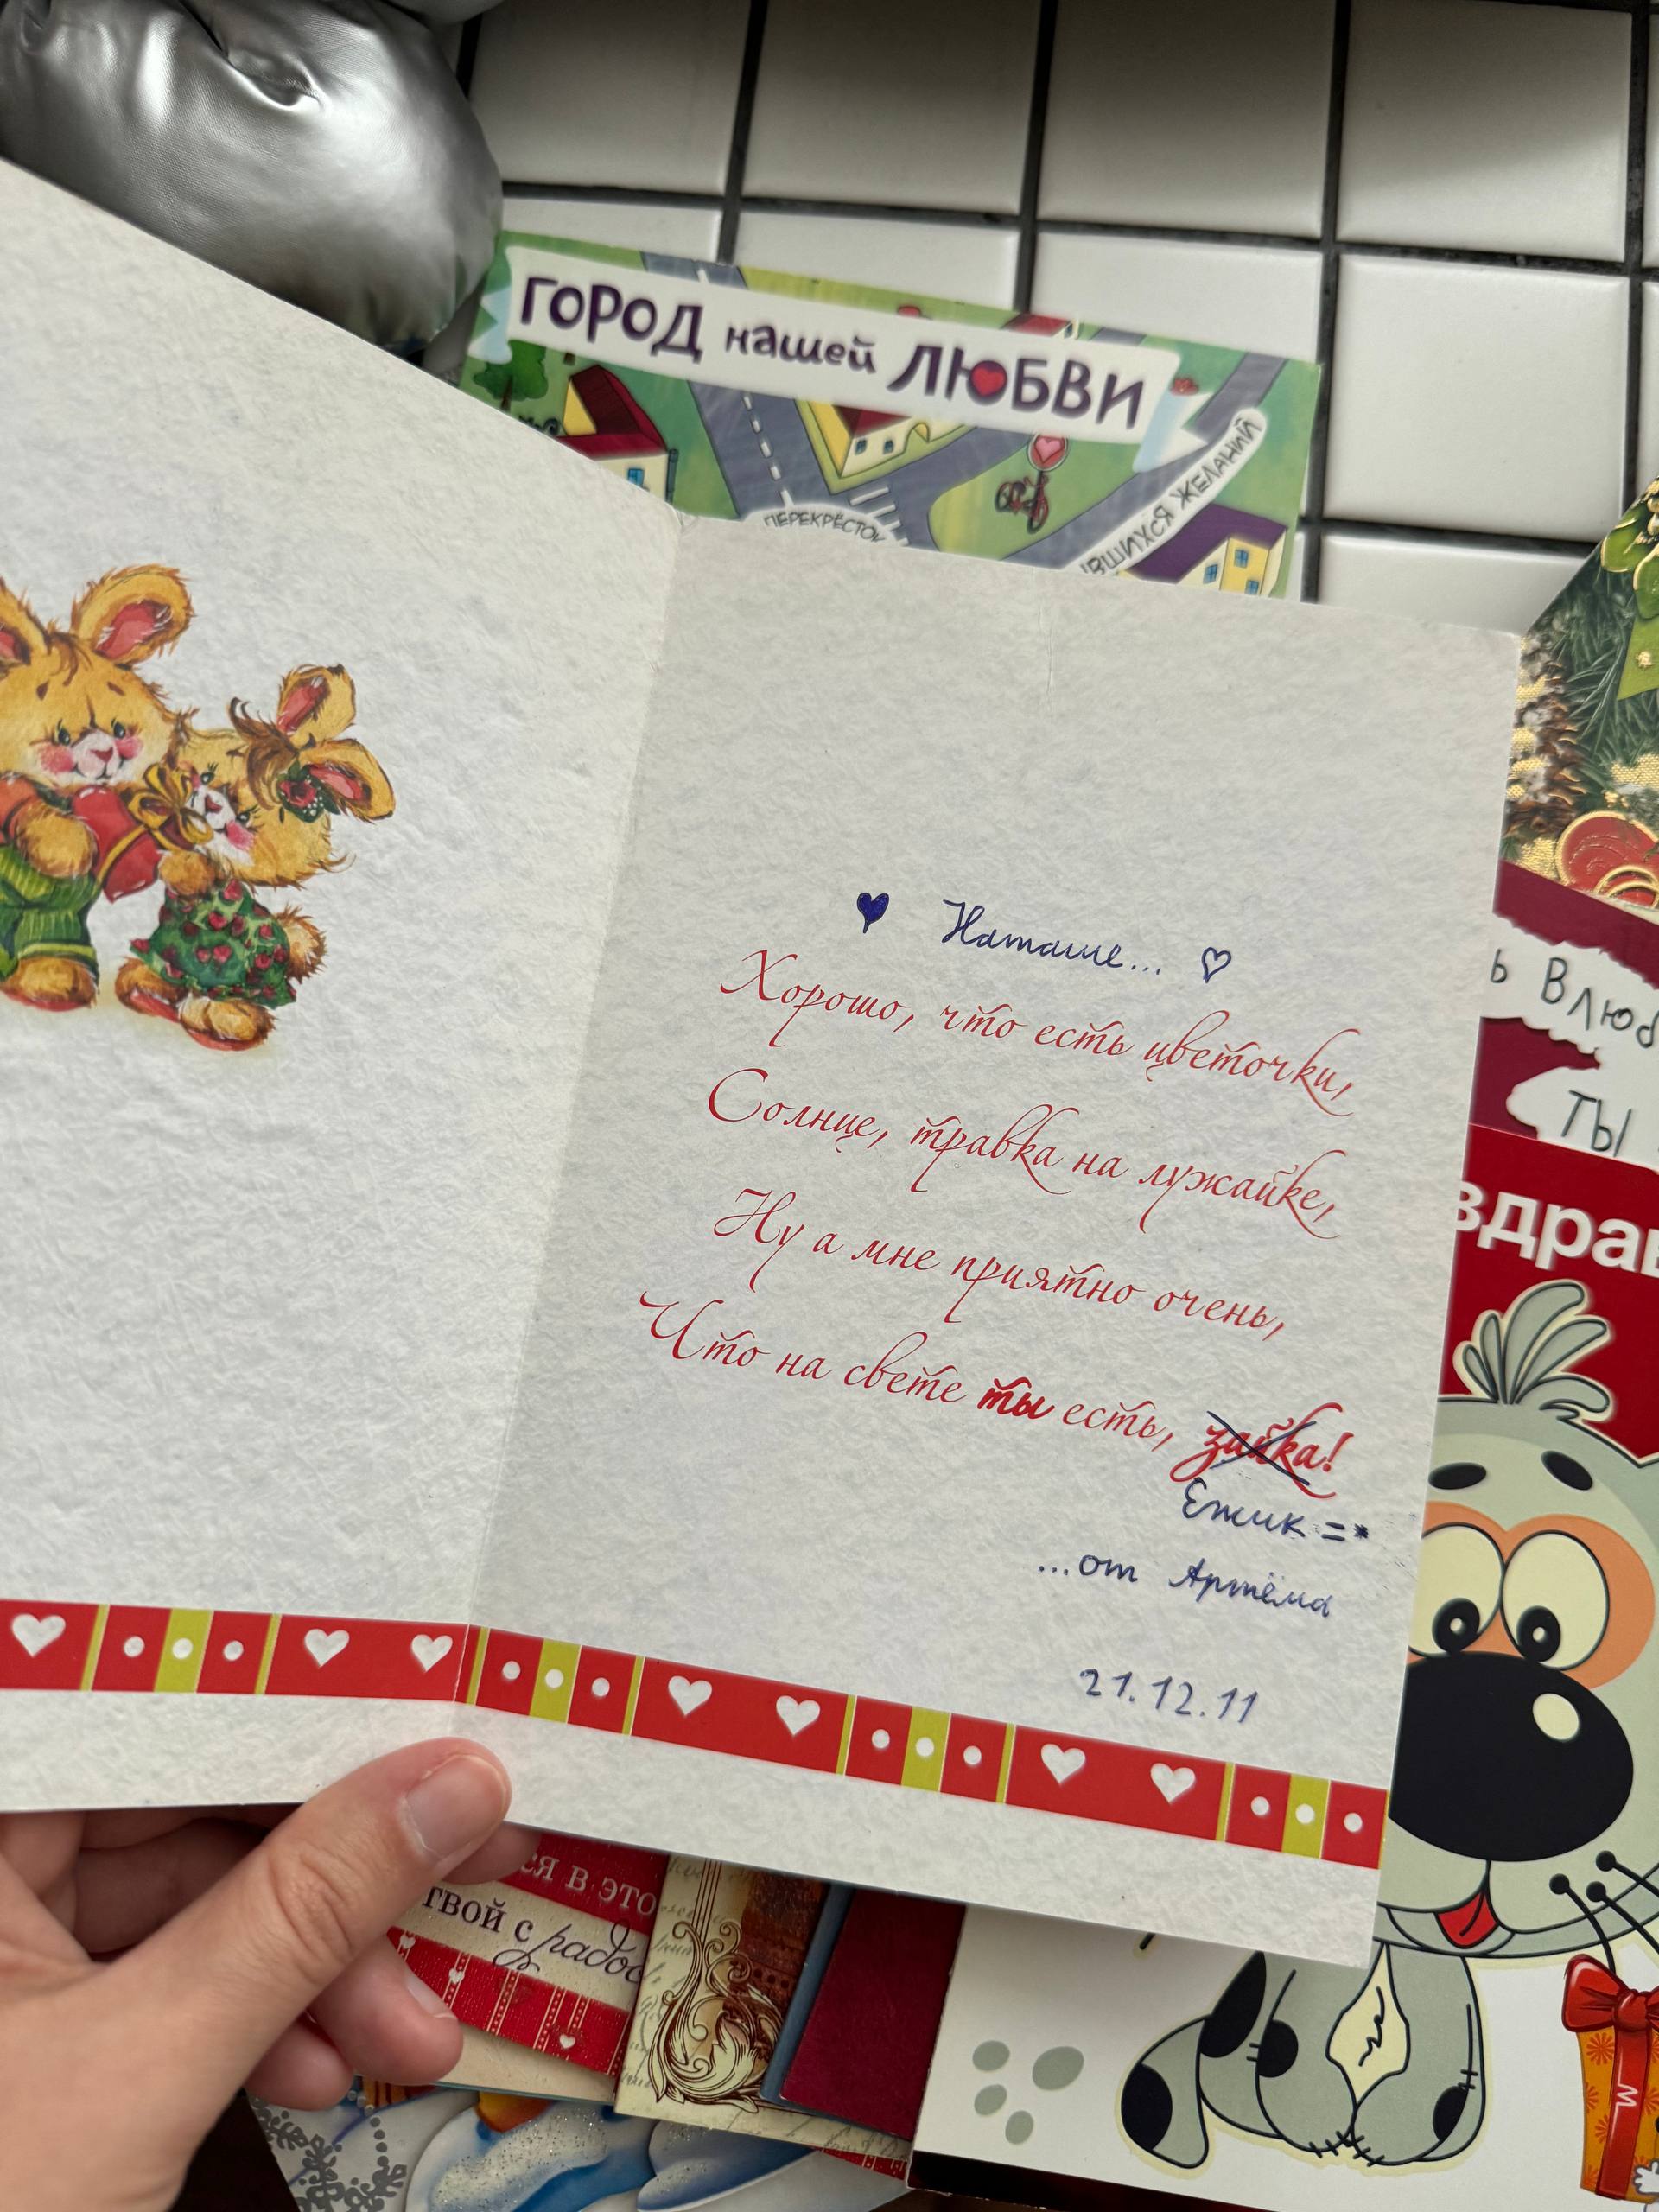 ГОРОД нашей ЛЮБВИ
ПЕРЕКРЁСТОК
ВШИХСЯ ЖЕЛАНИЙ
Наташе...
Хорошо, что есть цветочки,
Солнце, травка на лужайке,
Ну а мне приятно очень,
Что на свете ты есть, зайка!
Ёжик =*
...от Артёма
21.12.11
ь Влюб
ТЫ
здрав
ся в это
твой с радос
М